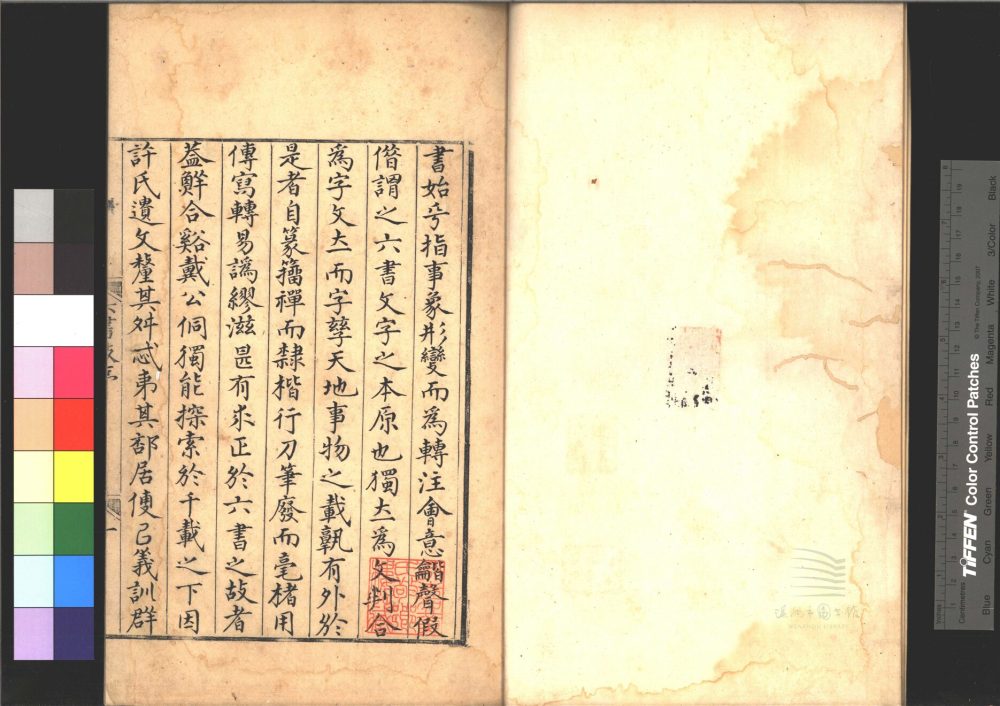 書始乎指事象形變而爲轉注會意龤聲假
偕謂之六書文字之本原也獨立爲文判合
爲字文立而字孳天地事物之載孰有外於
是者自篆籀禪而隸楷行刀筆廢而毫楮用
傳寫轉易譌繆滋甚有求正於六書之故者
葢鮮合谿戴公侗獨能探索於千載之下因
許氏遺文釐其舛忒弟其部居傳已義訓群
TIFFEN Color Control Patches
© The Tiffen Company, 2007
Centimetres
Blue
Cyan
Green
Yellow
Red
Magenta
White
3/Color
Black
溫州市圖書館
WENZHOU LIBRARY